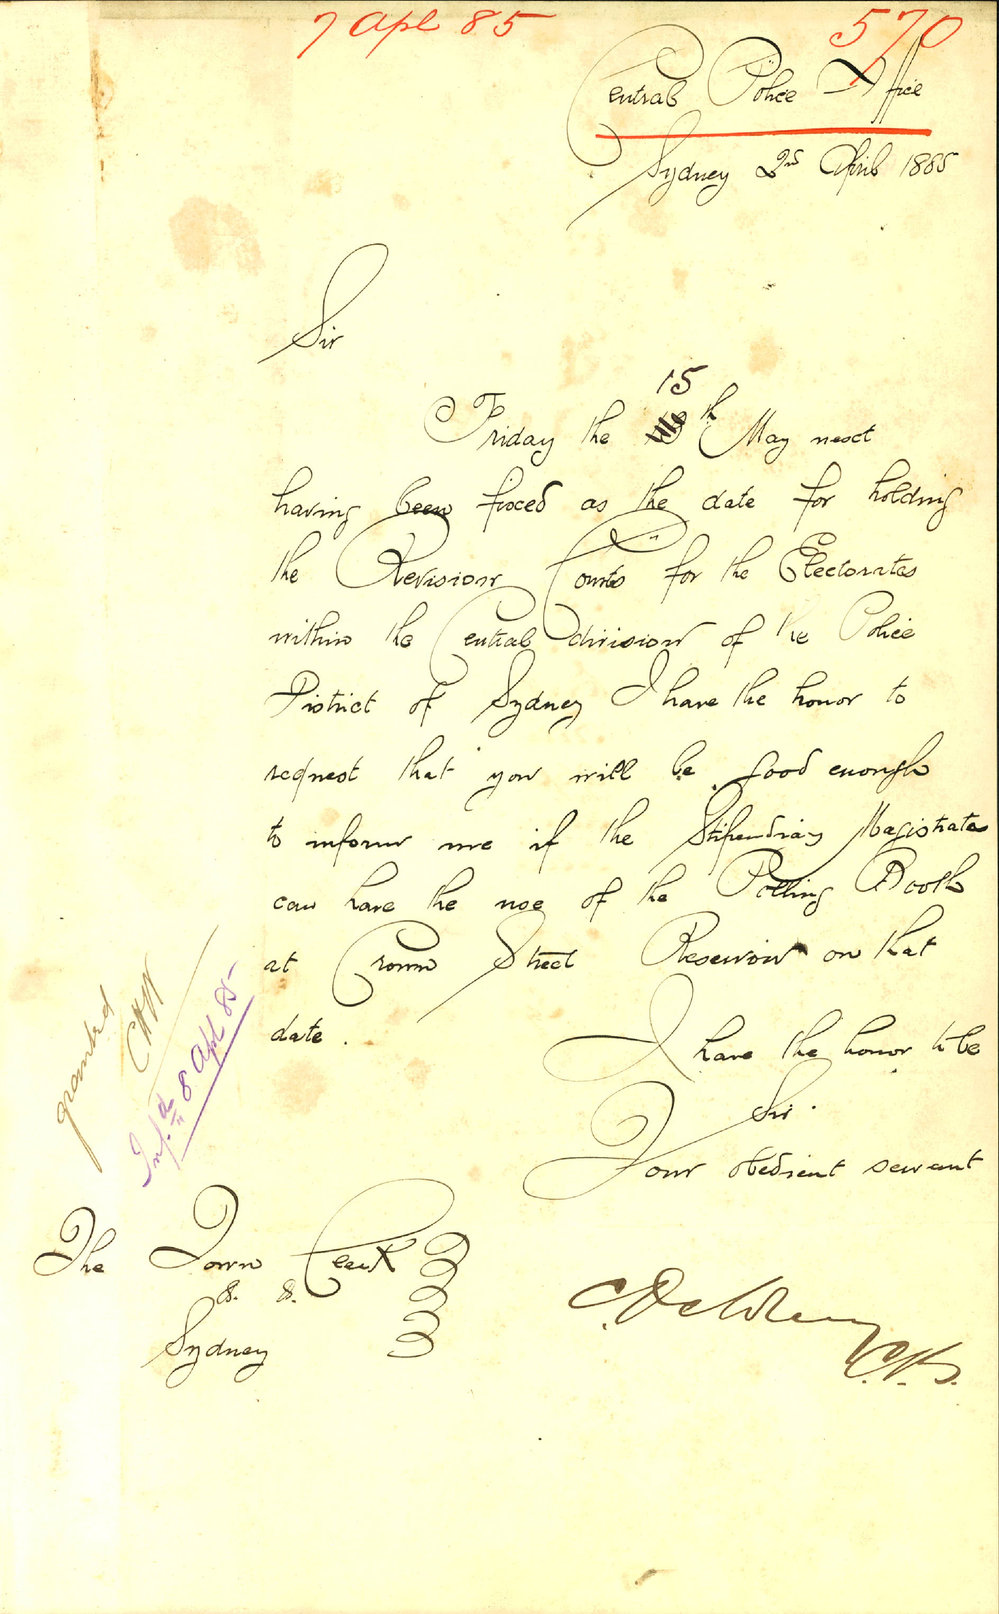 7 Apl 85
570
Central Police Office
Sydney 2nd April 1885
Sir
15
Friday the th May next
having been fixed as the date for holding
the Revision Courts for the Electorates
within the Central division of the Police
District of Sydney I have the honor to
request that you will be good enough
to inform me if the Stipendiary Magistrates
can have the use of the Polling Booth
at Crown Street Reservoir on that
date.
I have the honor to be
Sir
Your obedient servant
granted
CHW
Infd 8 Apl 85
The Town Clerk
&. &.
Sydney
C. Delohery
C.P.S.